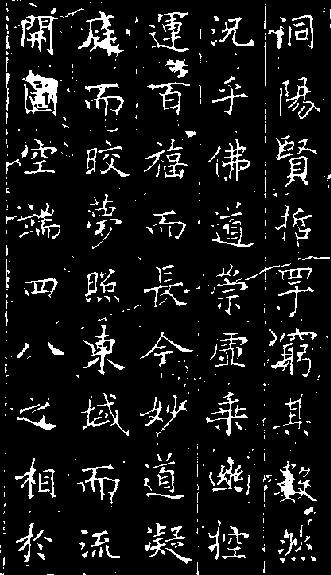 洞陽賢哲罕窮其數然
況乎佛道崇虛乘幽控
運百福而長今妙道凝
庭而皎夢照東域而流
開圖空端四八之相於